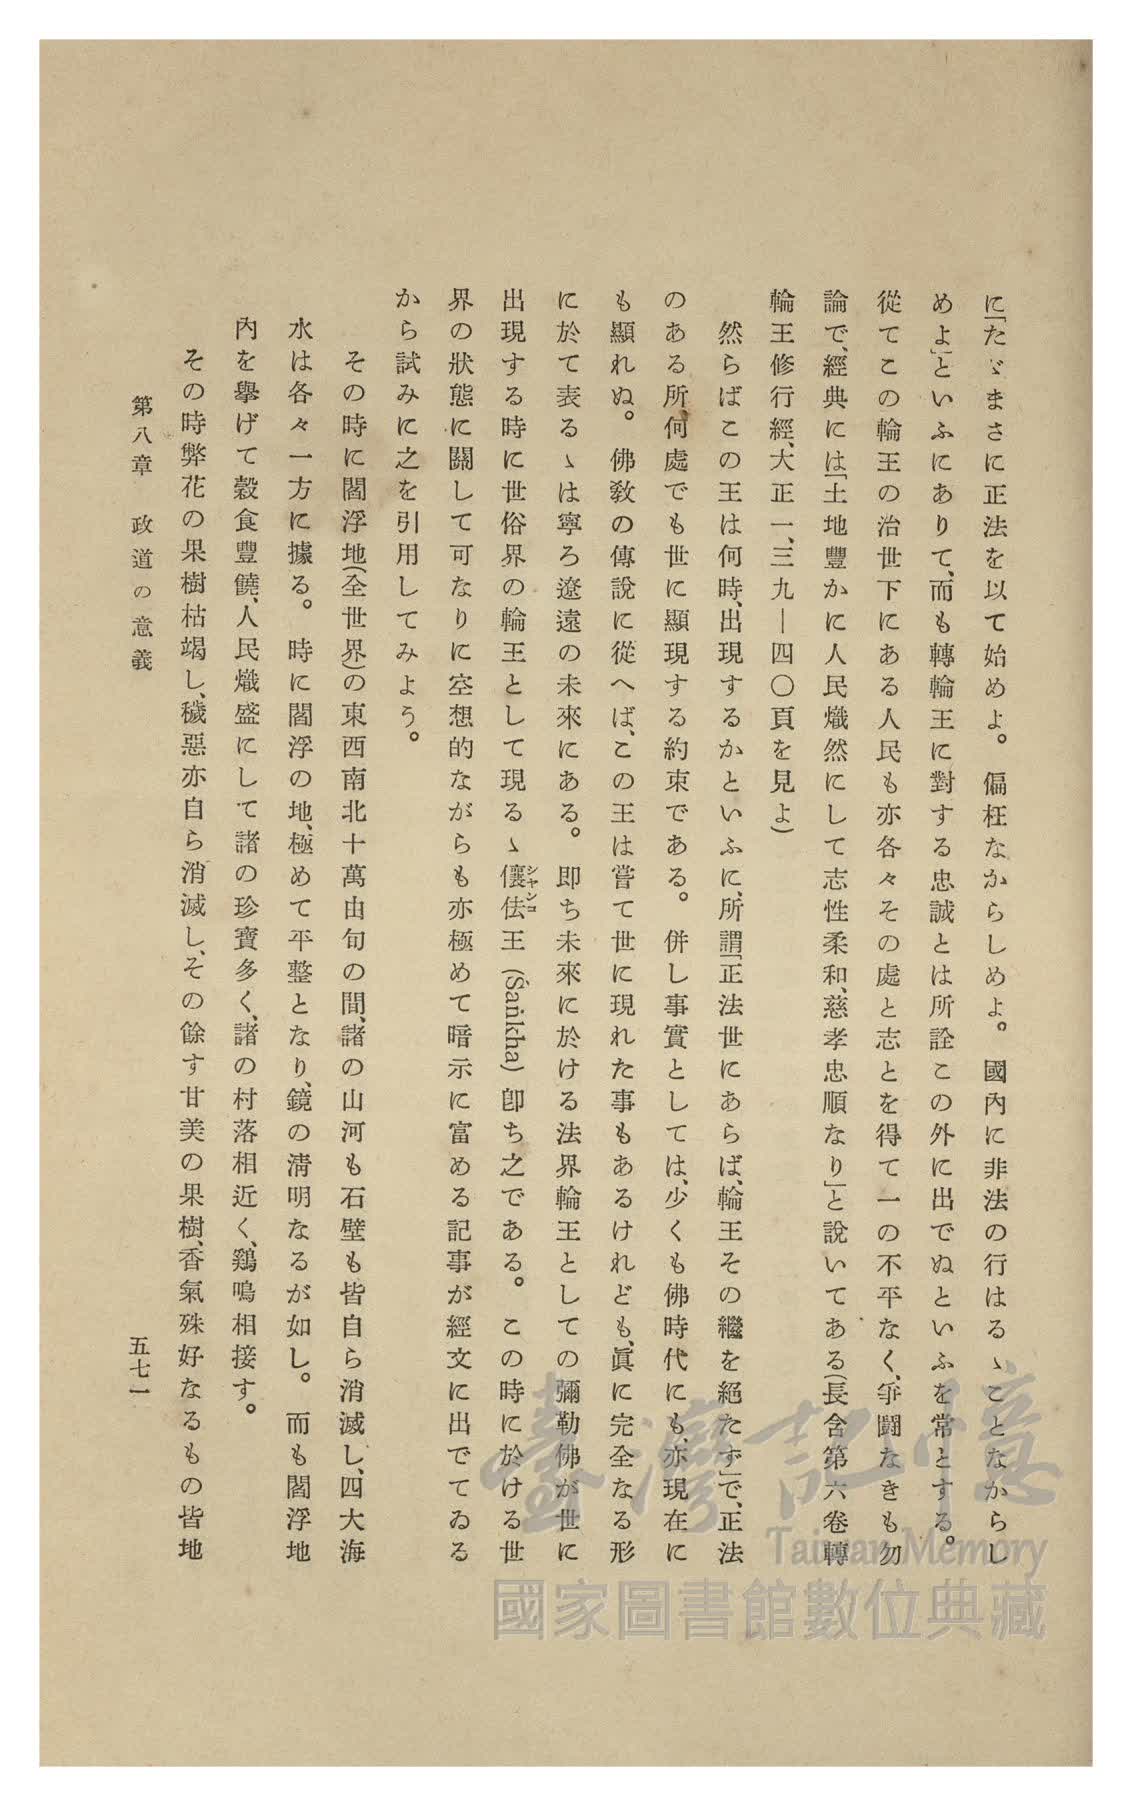 に「たゞまさに正法を以て始めよ。偏枉なからしめよ。國內に非法の行はるゝことなからし
めよ」といふにありて、而も轉輪王に對する忠誠とは所詮この外に出でぬといふを常とする。
從てこの輪王の治世下にある人民も亦各々その處と志とを得て一の不平なく、爭鬪なきも勿
論で、經典には「土地豐かに人民熾然にして志性柔和、慈孝忠順なり」と說いてある(長含第六卷轉
輪王修行經、大正一、三九―四〇頁を見よ)
然らばこの王は何時、出現するかといふに、所謂「正法世にあらば、輪王その繼を絕たず」で、正法
のある所、何處でも世に顯現する約束である。併し事實としては、少くも佛時代にも、亦現在に
も顯れぬ。佛敎の傳說に從へば、この王は嘗て世に現れた事もあるけれども、眞に完全なる形
に於て表るゝは寧ろ遼遠の未來にある。卽ち未來に於ける法界輪王としての彌勒佛が世に
出現する時に世俗界の輪王として現るゝ儴佉王シャンコ(Śaṅkha)卽ち之である。この時に於ける世
界の狀態に關して可なりに空想的ながらも亦極めて暗示に富める記事が經文に出でてゐる
から試みに之を引用してみよう。
その時に閻浮地(全世界)の東西南北十萬由旬の間、諸の山河も石壁も皆自ら消滅し、四大海
水は各々一方に據る。時に閻浮の地、極めて平整となり、鏡の淸明なるが如し。而も閻浮地
內を擧げて穀食豐饒、人民熾盛にして諸の珍寶多く、諸の村落相近く、鷄鳴相接す。
その時弊花の果樹枯竭し、穢惡亦自ら消滅し、その餘す甘美の果樹、香氣殊好なるもの皆地
第八章 政道の意義
五七一
臺灣記憶
Taiwan Memory
國家圖書館數位典藏